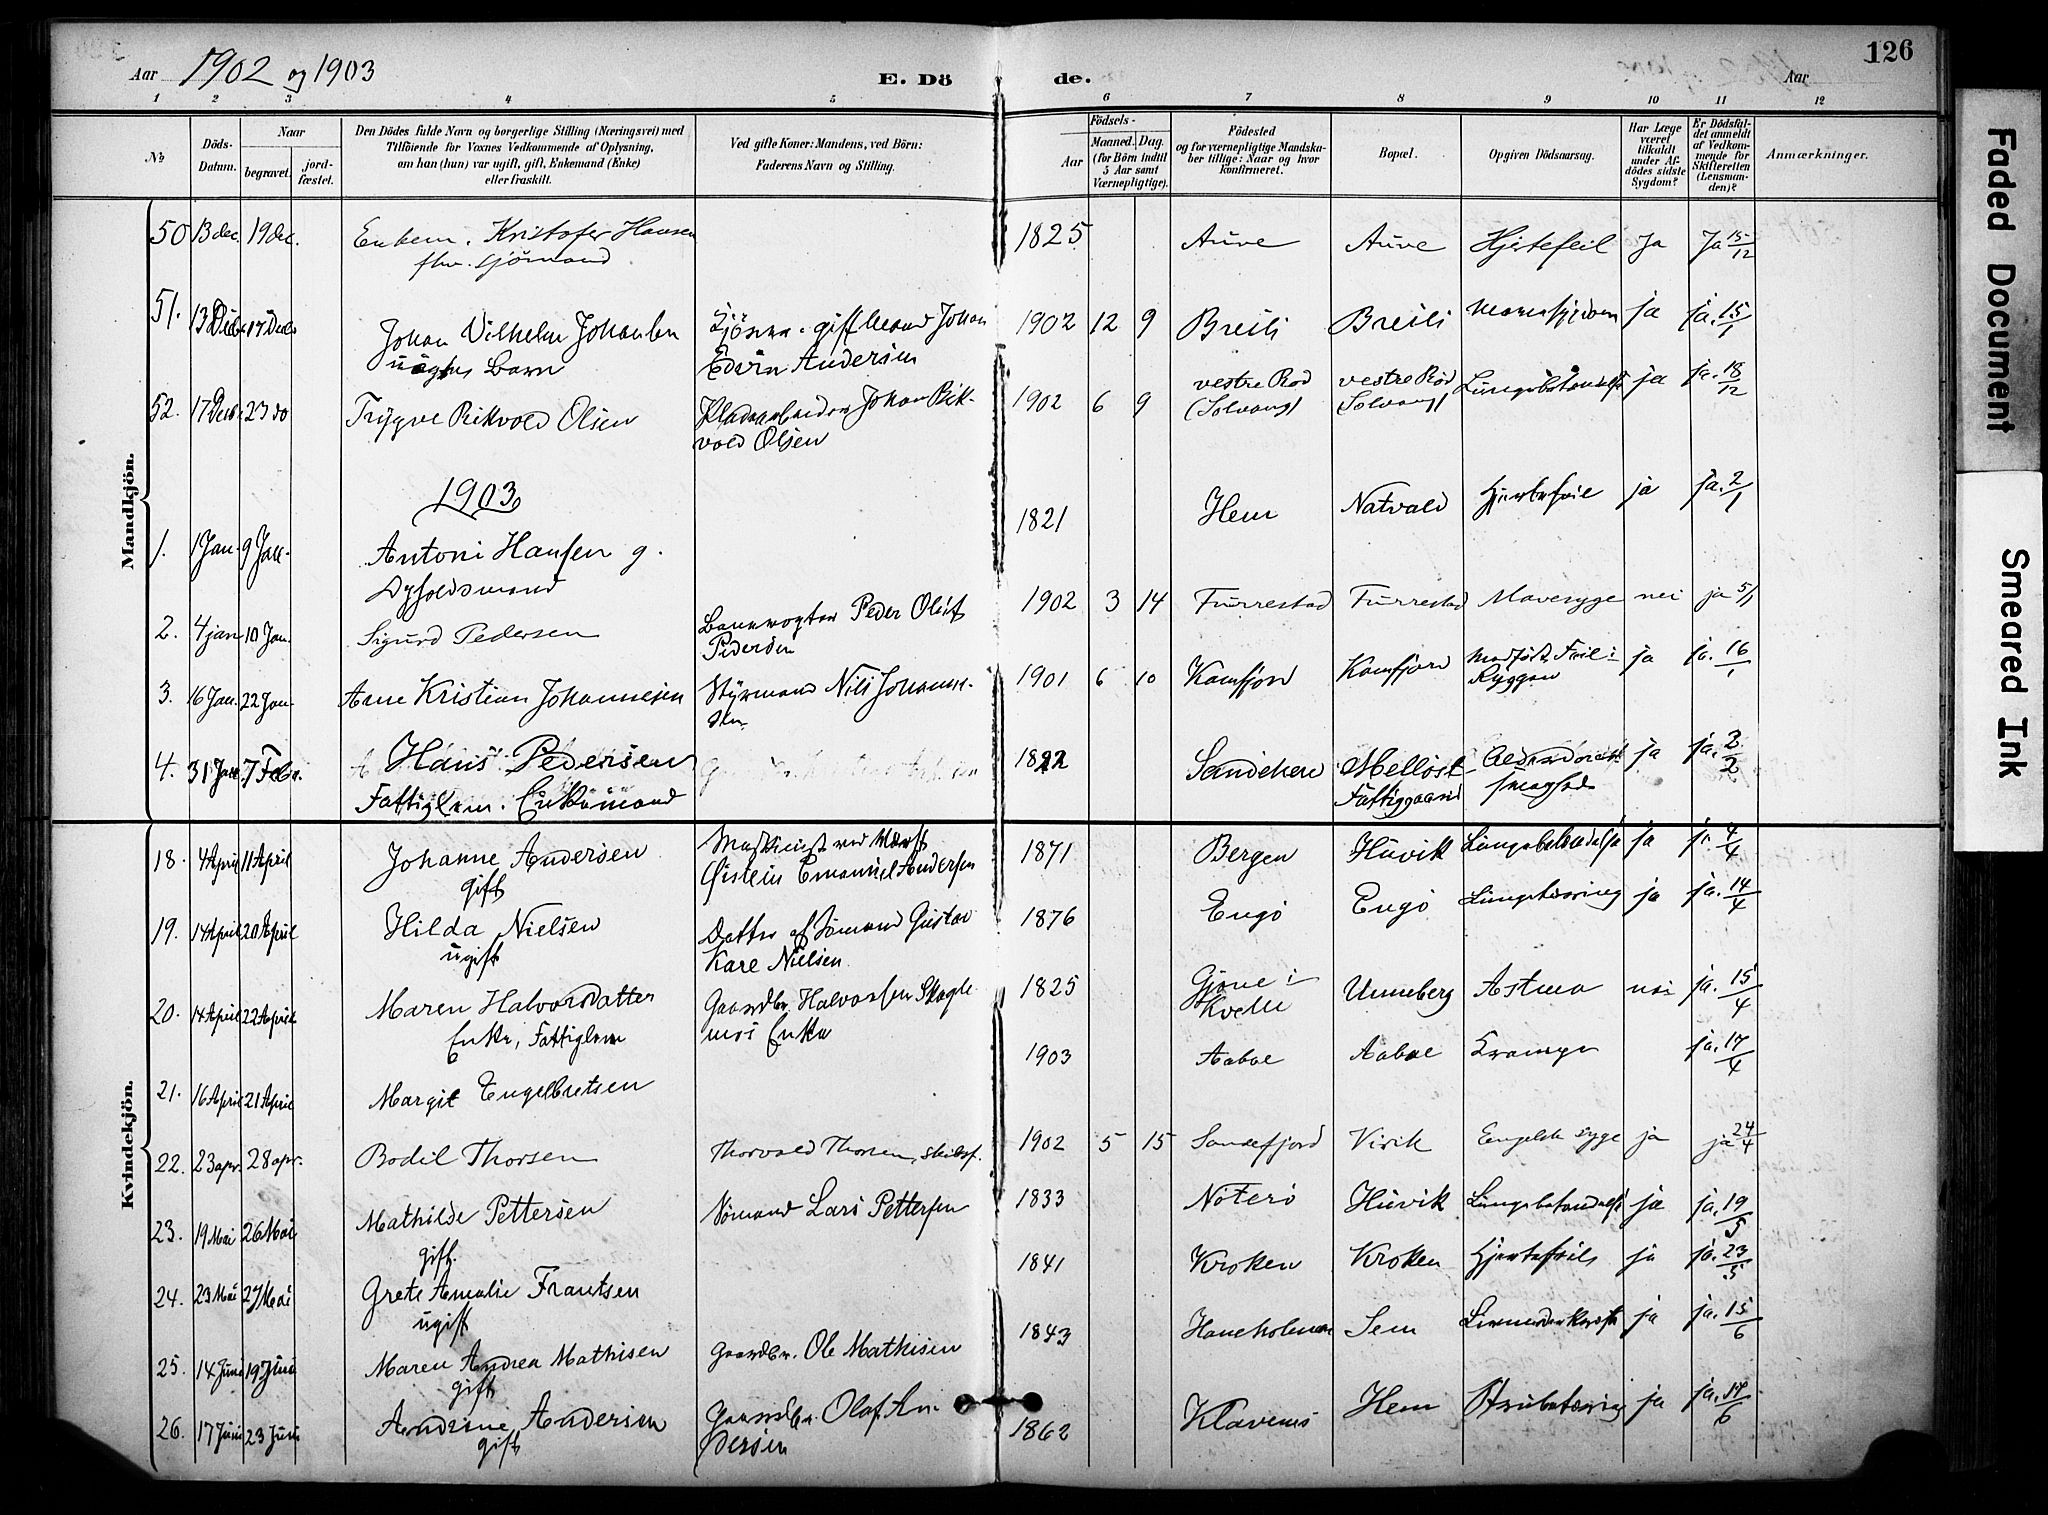 Aar 1902 og 1903 E. Dö de. Aar 126
1 2 3 4 5 6 7 8 9 10 11 12
No
Döds-Datum.
Naar
begravet.
jord-fæstet.
Den Dödes fulde Navn og borgerlige Stilling (Næringsvei) med
Tilföiende for Voxnes Vedkommende af Oplysning,
om han (hun) var ugift, gift, Enkemand (Enke)
eller fraskilt.
Ved gifte Koner: Mandens, ved Börn:
Faderens Navn og Stilling.
Födsels-
Aar
Maaned. Dag.
(for Börn indtil
5 Aar samt
Værnepligtige).
Födested
og for værnepligtige Mandska-
ber tillige: Naar og hvor
konfirmeret.
Bopæl.
Opgiven Dödsaarsag.
Har Læge
været
tilkaldt
under Af-
dödes sidste
Sygdom?
Er Dödsfal-
det anmeldt
af Vedkom-
mende for
Skifteretten
(Lensman-
den)?
Anmærkninger.
Mandkjön.
50 13 dec. 19 dec. Enkem. Kristofer Hansen 1825 Auve Auve Hjertefeil Ja Ja 15/12
fhv. sjömand
51. 13 Decbr 17 Decbr Johan Vilhelm Johansen gift Mand Johan 1902 12 9 Breili Breili ja ja. 15/1
uægte Barn Edvin Andersen
52. 17 Decbr 23 do Trygve Rikvold Olsen Johan Rik- 1902 6 9 vestre Röd vestre Röd Lungebetændelse ja ja. 18/12
vold Olsen (Solvang) (Solvang)
1903
1. 1 Jan. 9 Jan. Antoni Hansen g. 1821 Hem Natvald Hjertefeil ja ja. 2/1
2. 4 jan 10 Jan. Sigurd Pedersen Banevogter Peder Oluf 1902 3 14 Furrestad Furrestad Mavesyge nei ja 5/1
Pedersen
3. 16 Jan. 22 Jan. Arne Kristian Johannesen Styrmand Nils Johanne- 1901 6 10 Kamfjord Kamfjord Medfödt Feil i ja ja. 16/1
sen Ryggen
4. 31 Jan. 7 Febr. Hans Pedersen 1822 Sandeherr Melløst ja ja. 2/2
Fattiglem. Enkemand Fattiggaard
Kvindekjön.
18. 4 April 11 April Johanne Andersen Maskinist 1871 Bergen Huvik Lungebetændelse ja ja. 4/4
gift Øistein Emanuel Andersen
19. 14 April 20 April Hilda Nielsen Datter af Sömand Gustav 1876 Engö Engö Lungetæring ja ja. 14/4
ugift Kare Nielsen
20. 14 April 22 April Maren Halvorsdatter Gaardbr. Halvorsen 1825 Gjone i Unneberg Astma nei ja. 15/4
Enke, Fattiglem Enke Kvelle
21. 16 April 21 April Margit Engelbretsen 1903 Aaboe Aaboe Krampe ja. 17/4
22. 23 apr. 28 apr. Bodil Thorsen Thorvald Thorsen, 1902 5 15 Sandefjord Virik Engelsk syge ja ja 24/4
23. 19 Mai 26 Mai Mathilde Pettersen Sömand Lars Pettersen 1833 Nöterö Huvik Lungebetændelse ja ja. 19/5
gift.
24. 23 Mai 27 Mai Grete Amalie Frantsen 1841 Kroken Kroken Hjertefeil ja ja. 23/5
ugift
25. 14 Juni 19 Juni Maren Andrea Mathisen Gaardbr. Ole Mathisen 1843 Haneholmen Sem ja ja. 15/6
gift
26. 17 Juni 23 Juni Andrine Andersen Gaardbr. Olaf An- 1862 Klavenes Hem Strubetæring ja ja. 17/6
gift dersen
Faded Document
Smeared Ink